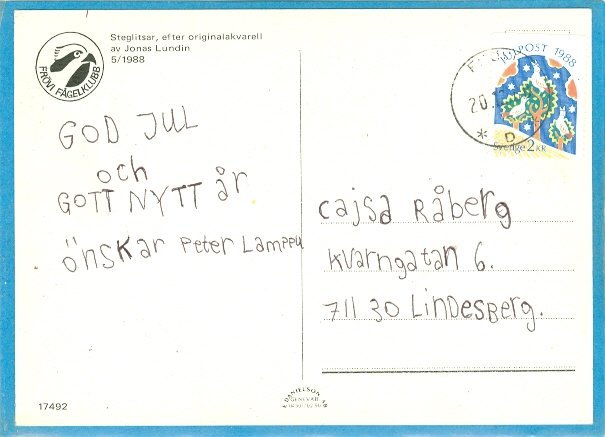 Steglitsar, efter originalakvarell
av Jonas Lundin
5/1988
FRÖVI FÅGELKLUBB
GOD JUL
och
GOTT NYTT år
önskar Peter Lamppu
JULPOST 1988
20.12
Sverige 2 KR
Cajsa Råberg
Kvarngatan 6.
711 30 Lindesberg.
17492
DANIELSON
GENEVAD